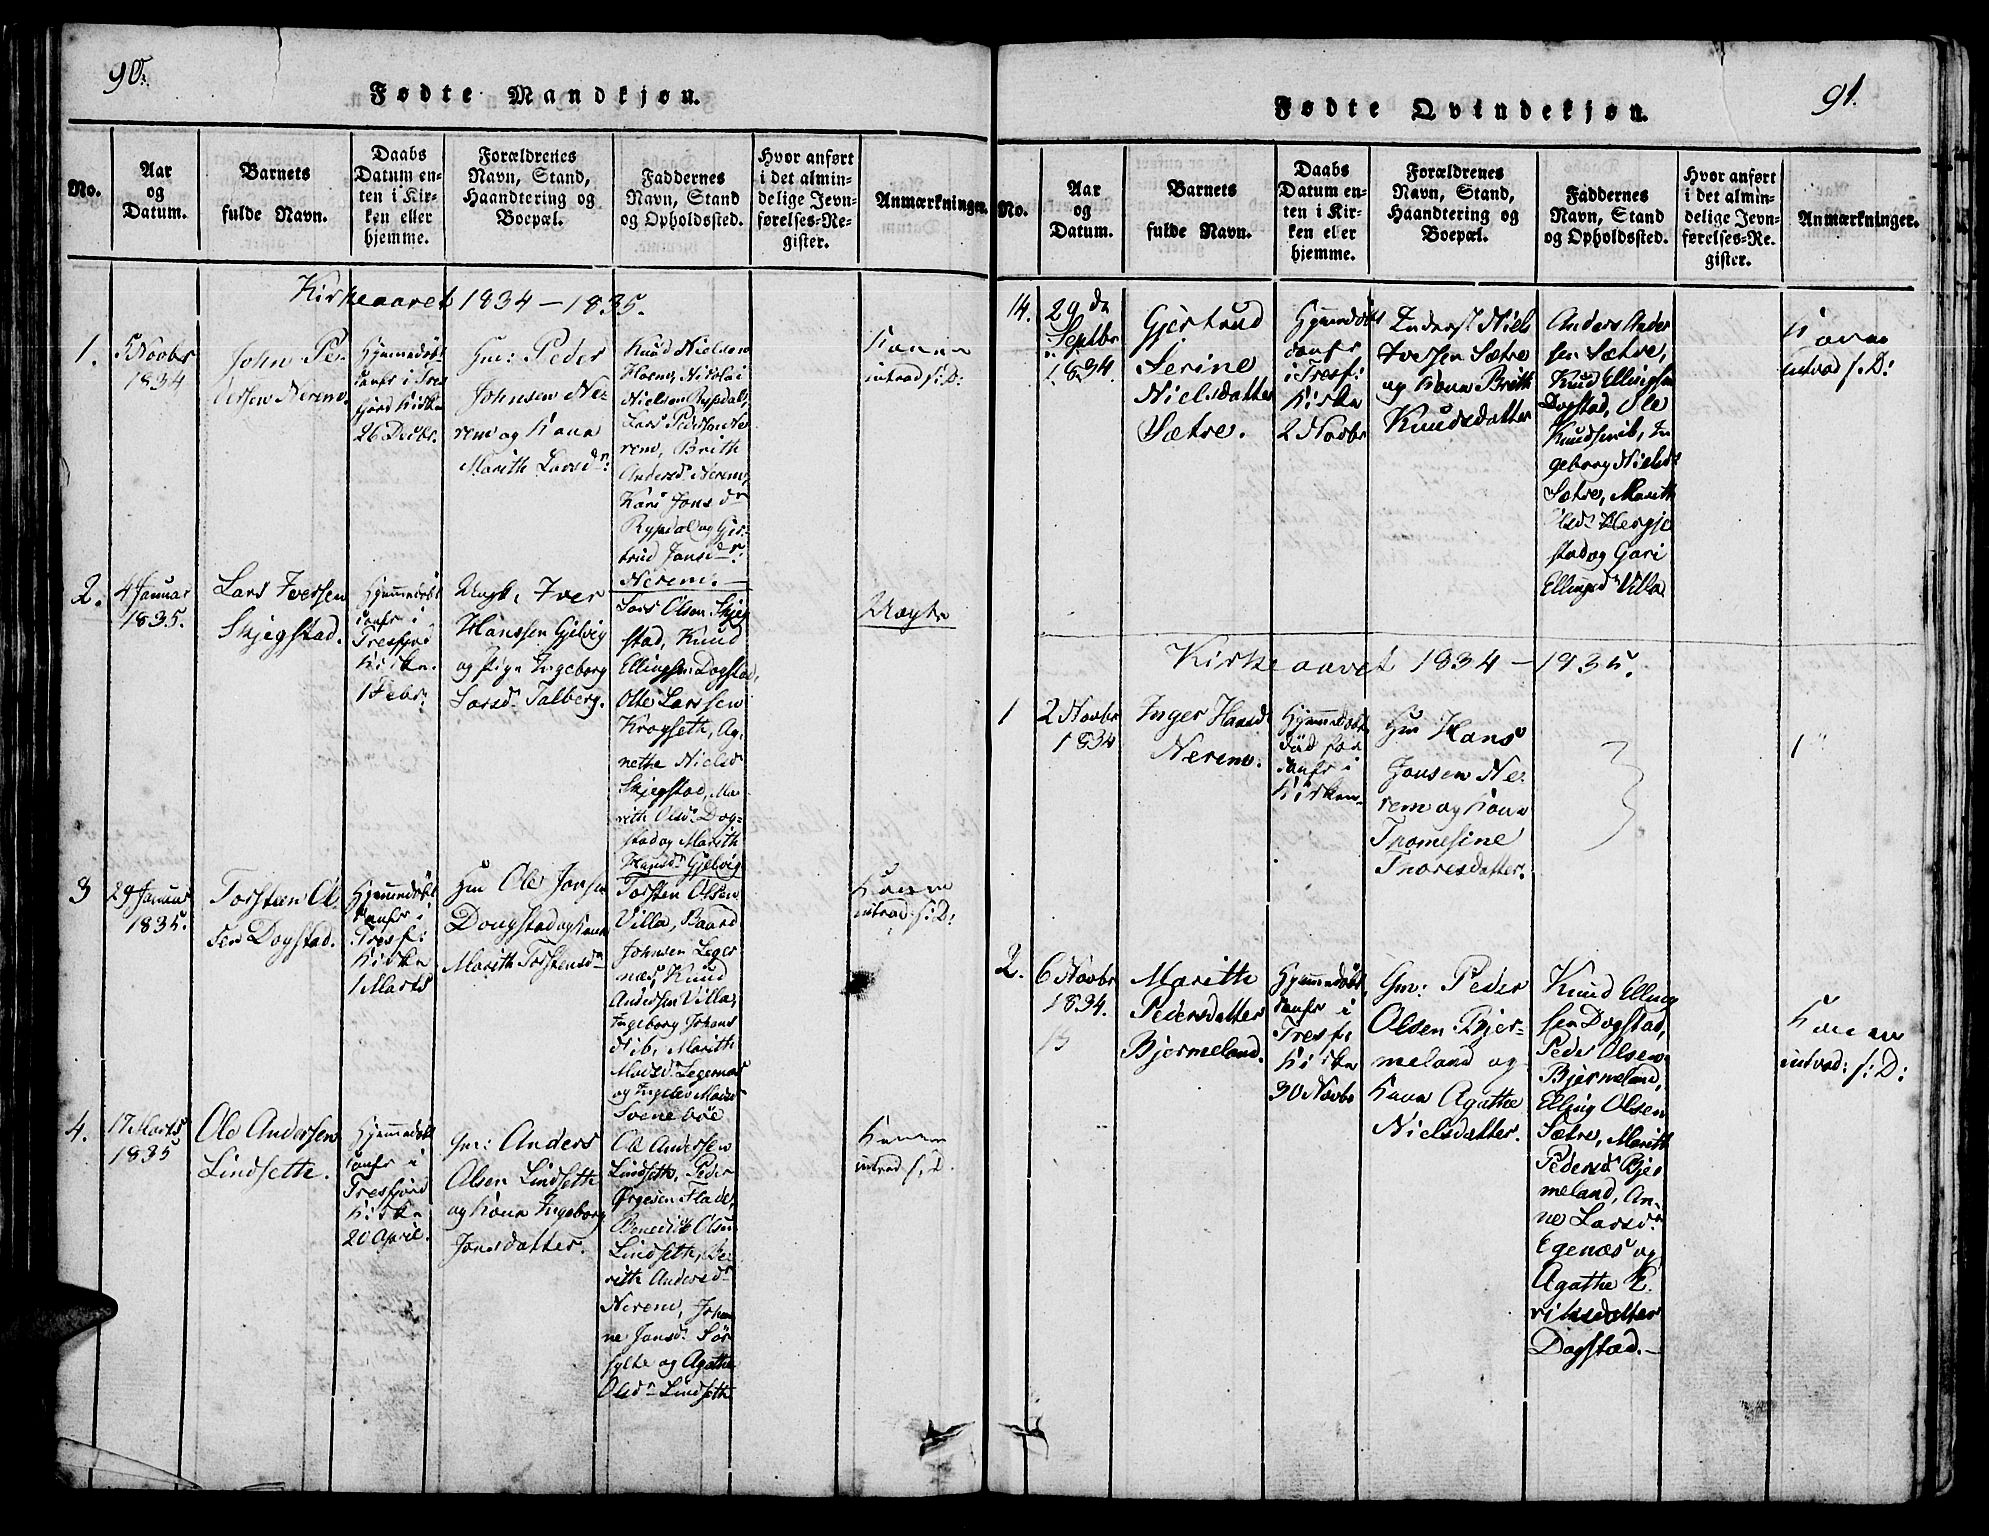 90.
Fødte Mandkjøn.
No.
Aar
og
Datum.
Barnets
fulde Navn.
Daabs
Datum en-
ten i Kir-
ken eller
hjemme.
Forældrenes
Navn, Stand,
Haandtering og
Boepæl.
Faddernes
Navn, Stand
og Opholdssted.
Hvor anført
i det almin-
delige Jevn-
førelses-Re-
gister.
Anmærkninger.
Kirkeaaret 1834-1835.
1.
5 Novbr
1834
John Pe-
dersen Nerem.
Hjemmedøbt
i Tres
fjord Kirke
26 Decbr.
Gm: Peder
Johnsen Ne-
rem og Kone
Marith Larsdr:
Knud Nielsen
Nikolai
Nielsen Rypdal,
Lars Pedersen Ne
rem, Brith
Andersdr Nerem,
Kari Jonsdr
Rypdal og Gjer-
trud Jonsdr.
Nerem.
Konen
introd. s: D:
2.
4 Januar
1835.
Lars Iversen
Skjegstad.
Hjemmedøbt
i
Tresfjord
Kirke
1 Febr.
Ungk. Iver
Hanssen Gjelvig
og Pige Ingeborg
Larsd. Talberg.
Lars Olsen Skjeg
stad, Knud
Ellingsen Dogstad,
Olle Larssen
Krogseth, An-
nethe Nielsd
Skjegstad, Ma-
rith Olsd. Dog-
stad og Marith
Hansd. Gjelvig
Uægte
3
29 Januar
1835.
Torsten Ol-
sen Dogstad.
Hjemmedøbt
i
Tresf:
Kirke
1 Marts
Gm Ole Jonsen
Dougstad og Kone
Marith Torstensdr
Torsten Olsen
Villa, Baard
Johnsen Leger
næs, Knud
Andersen Villa,
Ingeborg Johans
Nib, Marith
Madsd. Legernæs
og Madsd
Svenebøe
Konen
introd. s: D:
4.
17 Marts
1835
Ole Andersen
Lindsethe.
Hjemmedøbt
i
Tresfjord
Kirke
20 April.
Gm: Anders
Olsen Lindsethe
og Kone Ingeborg
Jonsdatter.
Ole Andersen
Lindseth, Peder
Ørgesen Flade,
Benedict Olsen
Lindseth, Be-
rith Andersdr
Nerem, Johan
ne Jonsd. Sør
sylte og Agathe
Olsdr Lindseth
Konen
introd s: D.
91.
Fødte Qvindekjøn.
No.
Aar
og
Datum.
Barnets
fulde Navn.
Daabs
Datum en-
ten i Kir-
ken eller
hjemme.
Forældrenes
Navn, Stand,
Haandtering og
Boepæl.
Faddernes
Navn, Stand
og Opholdssted.
Hvor anført
i det almin-
delige Jevn-
førelses-Re-
gister.
Anmærkninger.
14.
29 de
Septbr
1834.
Gjertrud
Serine
Nielsdatter
Sætre.
Hjemmedøbt
i Tresf:
Kirke
2 Novbr
Inderst Niels
Iversen Sætre
og Kone Brith
Knudsdatter
Anders Ander
sen Sætre,
Knud Ellingsen
Dogstad, Ole
Knudsen Nib, In
geborg Nielsd
Sætre, Marith
Olsd.
stad og Gori
Ellingsd Villa
Konen
introd s: D:
Kirkeaaret 1834-1835.
1
2 Novbr
1834
Inger Hansd
Nerem.
Hjemmedøbt
død før
i
Kirken
Gm Hans
Jonsen Ne-
rem og Kone
Thomesine
Thoresdatter.
2.
6 Novbr
1834.
Marithe
Pedersdatter
Bjermeland.
Hjemmedøbt
i
Tresf:
Kirke
30 Novbr
Gm: Peder
Olsen Bjer-
meland og
Kone Agathe
Nielsdatter.
Knud Elling
sen Dogstad,
Peder Olsen
Bjermeland,
Elling Olsen
Sætre, Marith
Pedersd Bjer
meland, An-
ne Larsdr
Egenæs og
Agathe E-
riksdatter
Dogstad.
Konen
introd: s: D: